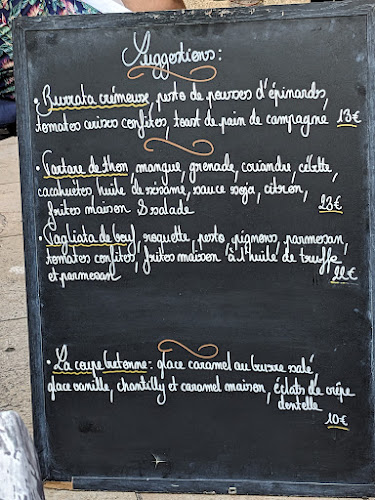 Suggestions :
• Burrata crémeuse, pesto de pousses d'épinards,
tomates cerises confites, toast de pain de campagne 13€
• Tartare de thon, mangue, grenade, coriandre, cébette,
cacahuètes, huile de sésame, sauce soja, citron,
frites maison & salade 23€
• Tagliata de bœuf, roquette, pesto, pignons, parmesan,
tomates confites, frites maison à l'huile de truffe
et parmesan 22€
• La coupe bretonne : glace caramel au beurre salé
glace vanille, chantilly et caramel maison, éclats de crêpe
dentelle
10€